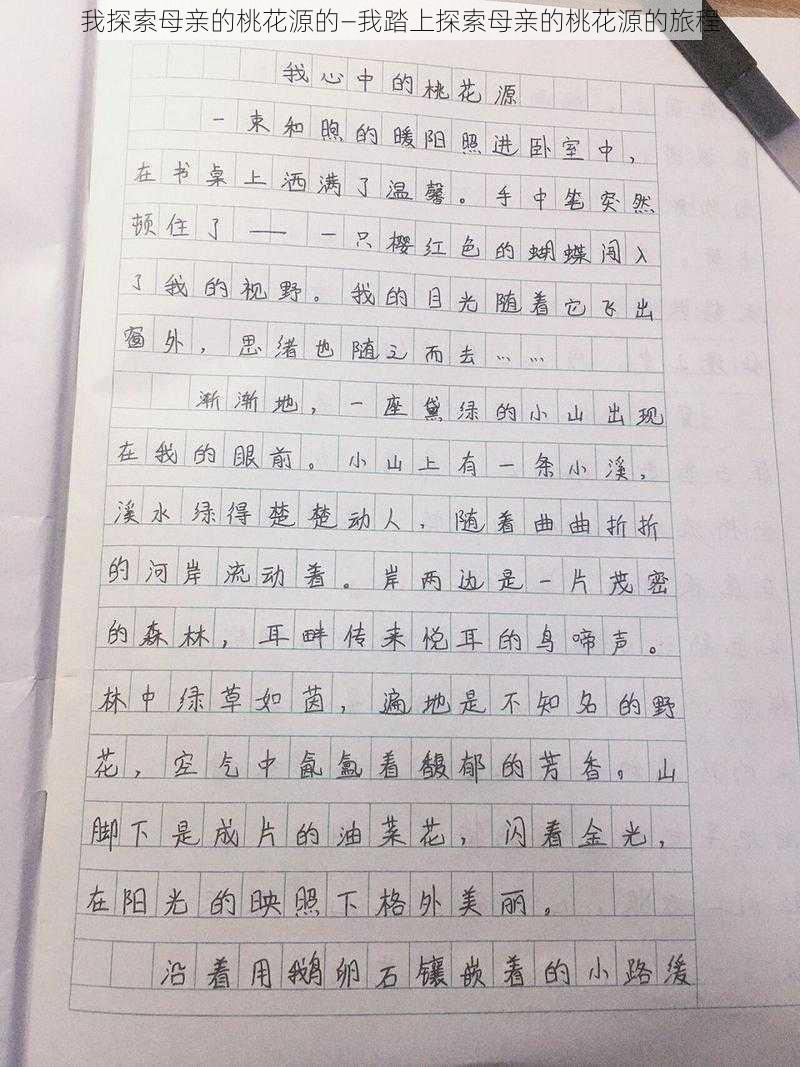 我探索母亲的桃花源的—我踏上探索母亲的桃花源的旅程
我心中的桃花源
一束和煦的暖阳照进卧室中，
在书桌上洒满了温馨。手中笔突然
顿住了——一只樱红色的蝴蝶闯入
了我的视野。我的目光随着它飞出
窗外，思绪也随之而去……
渐渐地，一座黛绿的小山出现
在我的眼前。小山上有一条小溪，
溪水绿得楚楚动人，随着曲曲折折
的河岸流动着。岸两边是一片茂密
的森林，耳畔传来悦耳的鸟啼声。
林中绿草如茵，遍地是不知名的野
花，空气中氤氲着馥郁的芳香。山
脚下是成片的油菜花，闪着金光，
在阳光的映照下格外美丽。
沿着用鹅卵石镶嵌着的小路缓